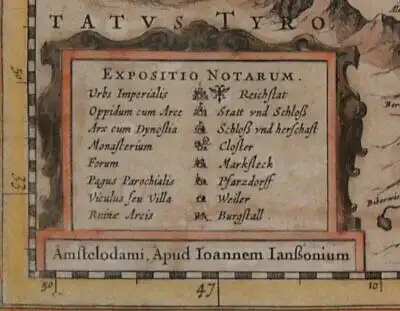 TATVS TYRO
EXPOSITIO NOTARUM.
Urbs Imperialis Reichstat
Oppidum cum Arce Statt vnd Schloß
Arx cum Dynastia Schloß vnd herschaft
Monasterium Closter
Forum Marktfleck
Pagus Parochialis Pfarzdorff
Viculus seu Villa Weiler
Ruinæ Arcis Burgstall.
Amstelodami, Apud Ioannem Ianßonium
50
23
50 47 10